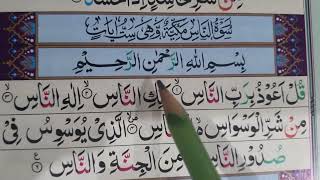 مِنْ شَرِّ حَاسِدٍ اِذَا حَسَدَ
سُوْرَةُ النَّاسِ مَكِّيَّةٌ وَّهِيَ سِتُّ اٰيَاتٍ
بِسْمِ اللّٰهِ الرَّحْمٰنِ الرَّحِيْمِ
قُلْ اَعُوْذُ بِرَبِّ النَّاسِ ۙ مَلِكِ النَّاسِ ۙ اِلٰهِ النَّاسِ ۙ
مِنْ شَرِّ الْوَسْوَاسِ الْخَنَّاسِ ۙ الَّذِيْ يُوَسْوِسُ فِيْ
صُدُوْرِ النَّاسِ ۙ مِنَ الْجِنَّةِ وَالنَّاسِ